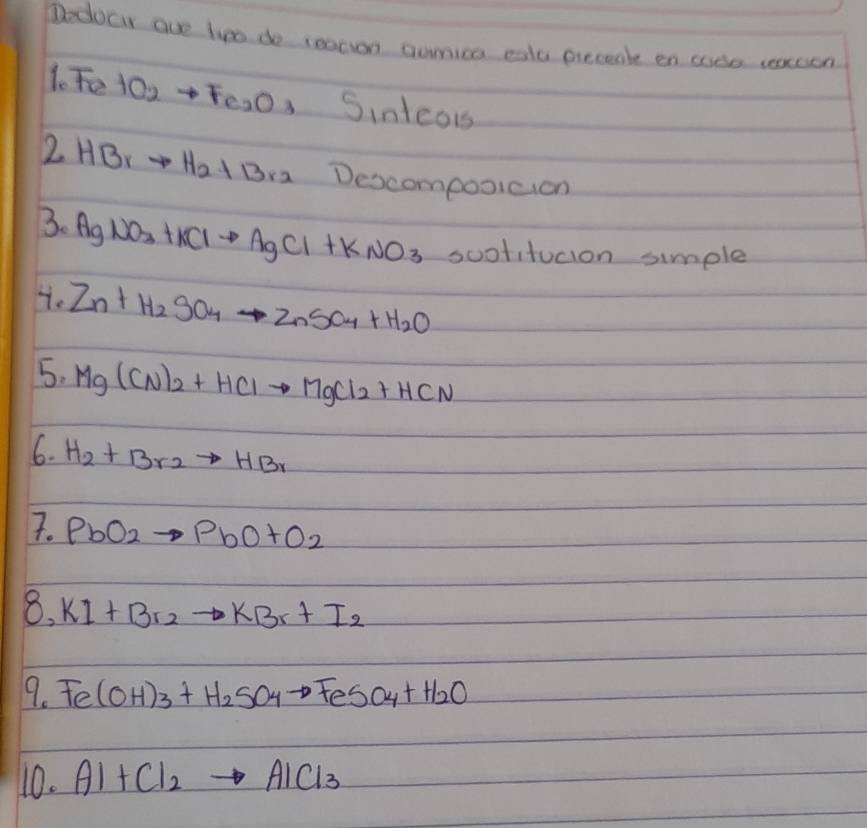 Deducir que tipo de reaccion quimica esta precente en cada reaccion
1. Fe + O2 → Fe2O3 Sintesis
2 HBr → H2 + Br2 Descomposicion
3. AgNO3 + KCl → AgCl + KNO3 sustitucion simple
4. Zn + H2SO4 → ZnSO4 + H2O
5. Mg(CN)2 + HCl → MgCl2 + HCN
6. H2 + Br2 → HBr
7. PbO2 → PbO + O2
8. KI + Br2 → KBr + I2
9. Fe(OH)3 + H2SO4 → FeSO4 + H2O
10. Al + Cl2 → AlCl3